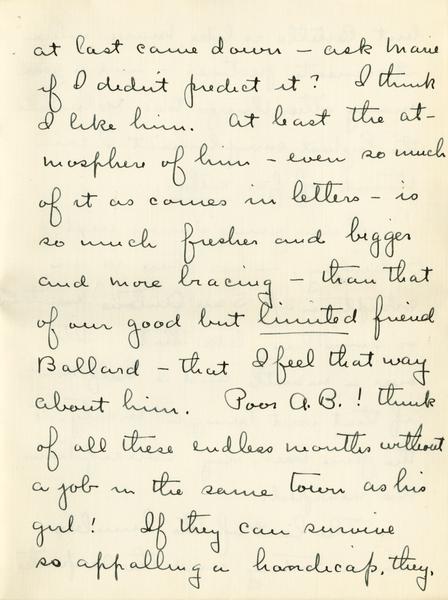 at last came down – ask Marie
if I didn't predict it? I think
I like him. At least the at-
mosphere of him – even so much
of it as comes in letters – is
so much fresher and bigger
and more bracing – than that
of our good but limited friend
Ballard – that I feel that way
about him. Poor A.B.! think
of all these endless months without
a job in the same town as his
girl! If they can survive
so appalling a handicap, they,